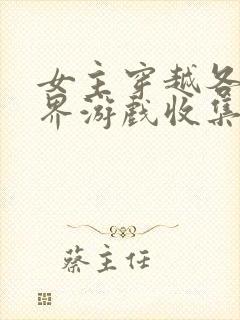 女主穿越各
界游戏收集
蔡主任